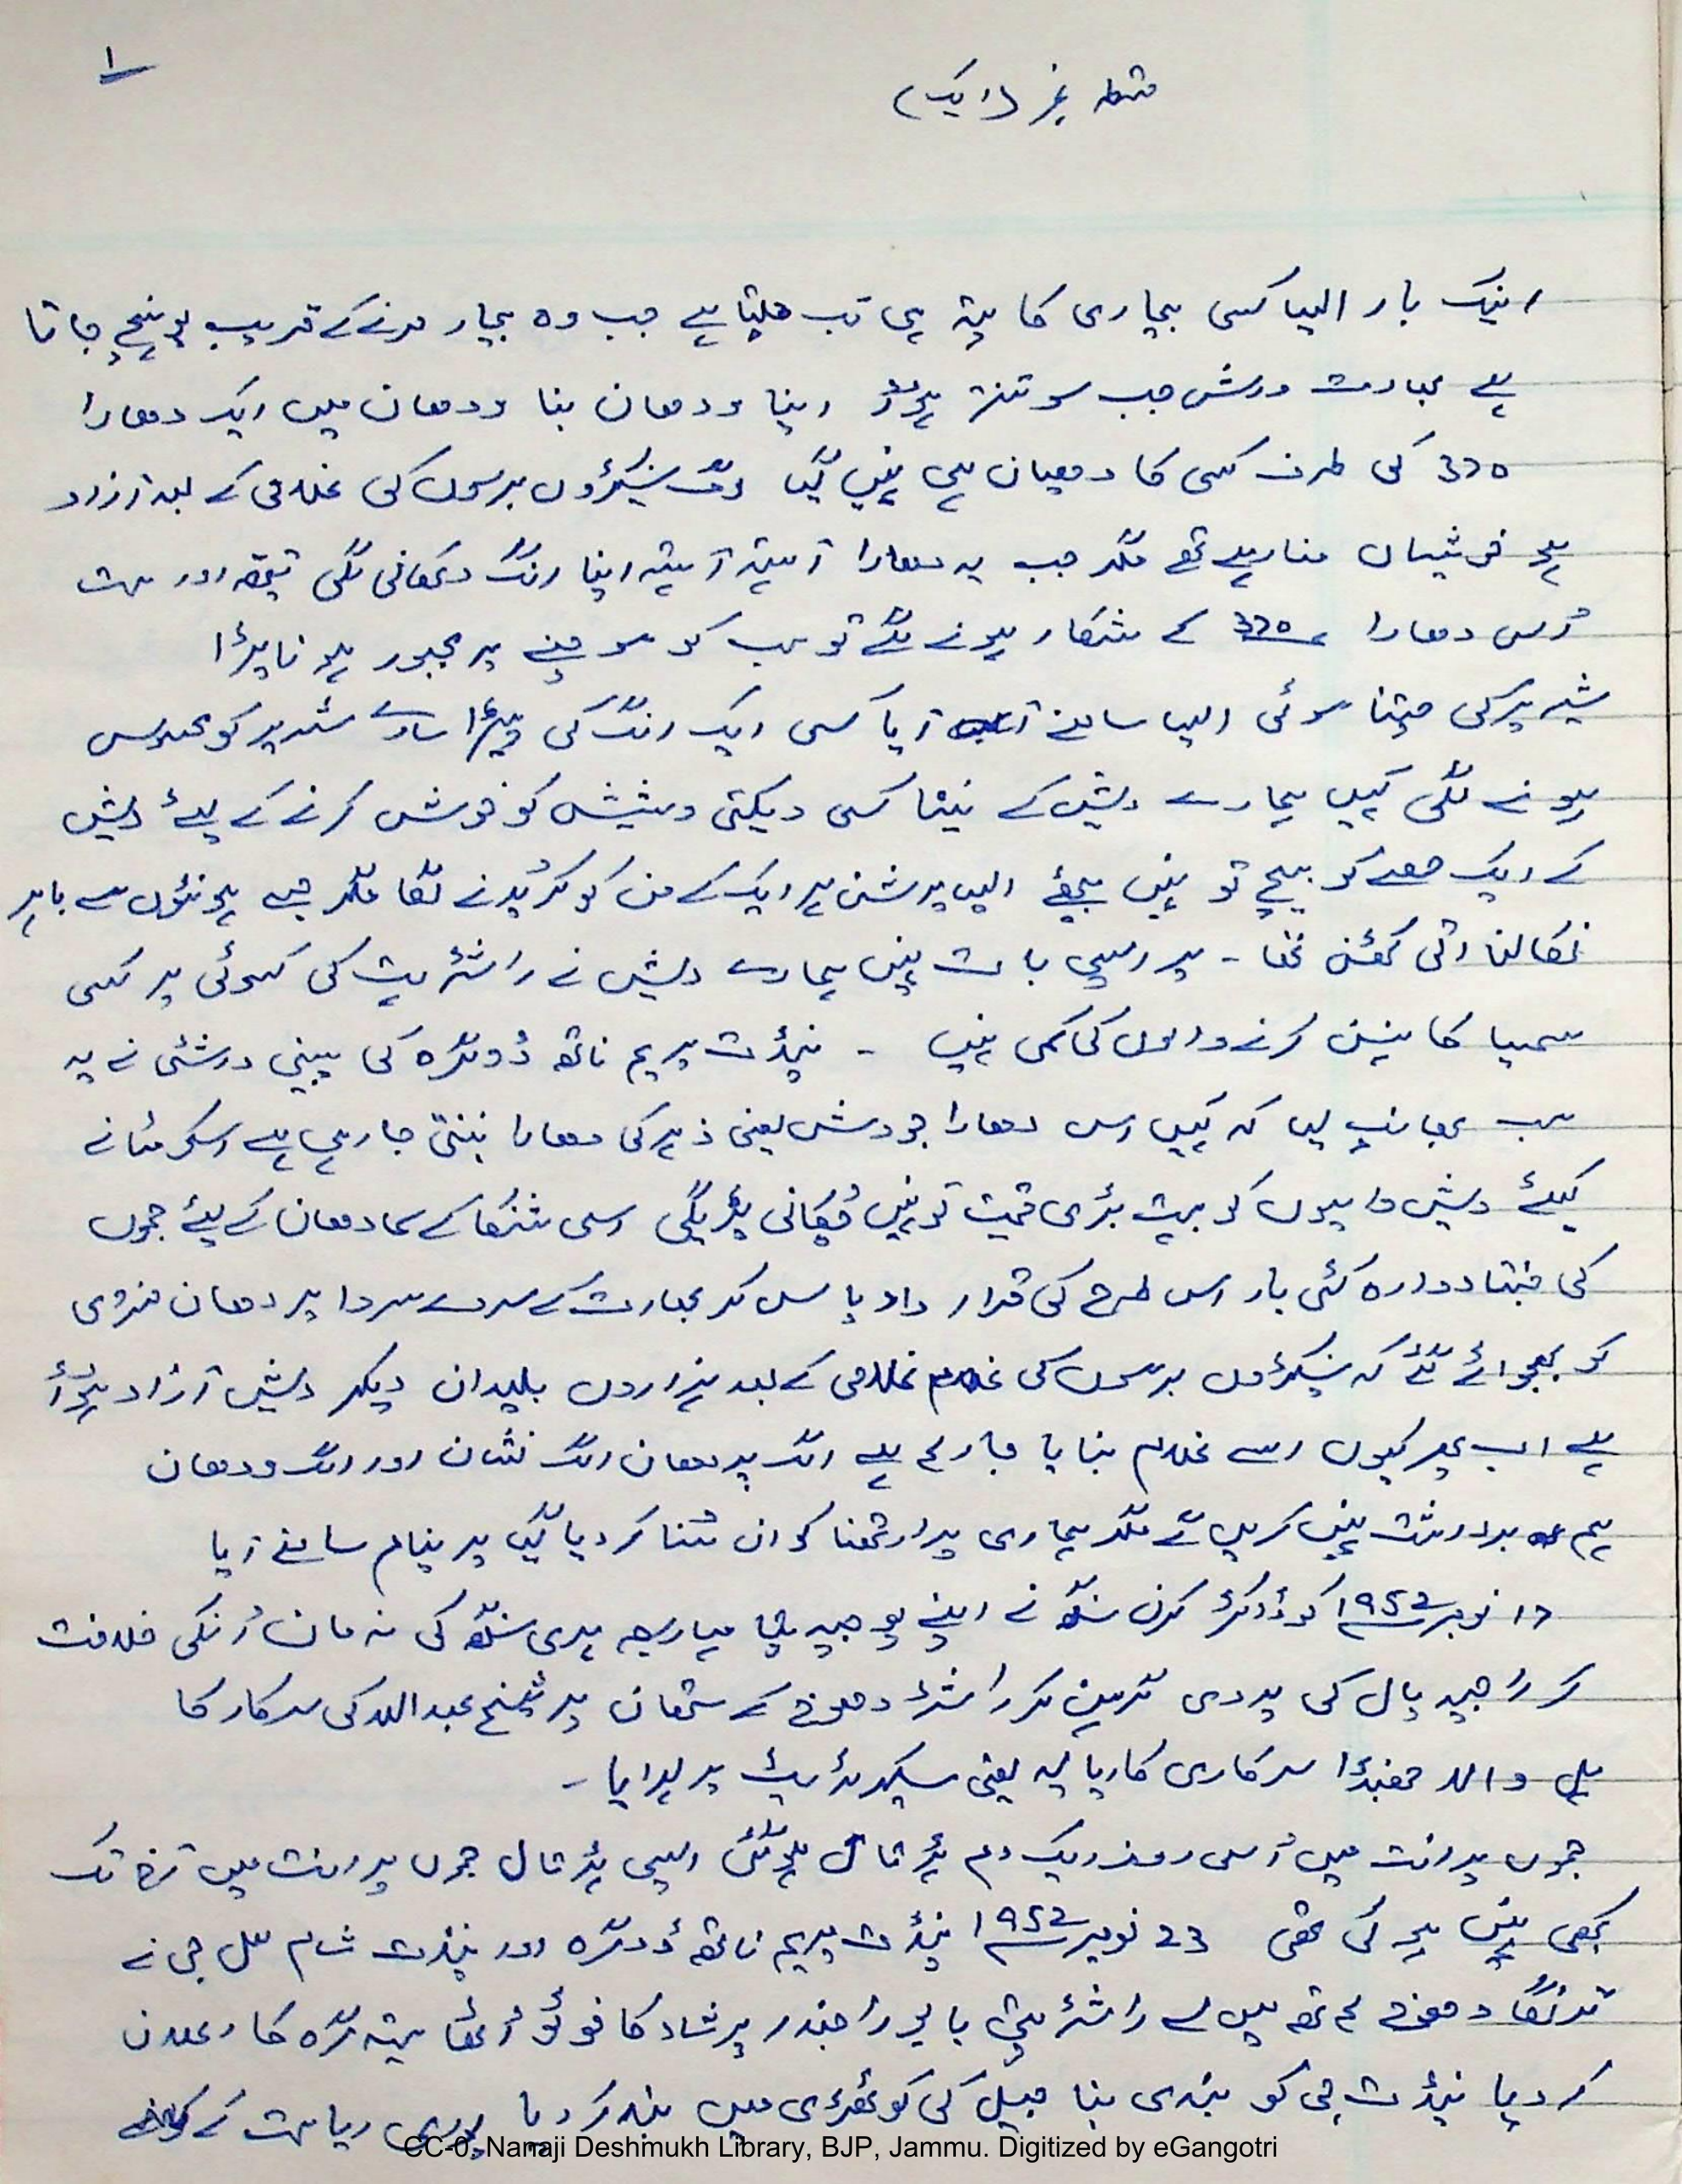 ۱
قسط نمبر (ایک)
انیک بار ایسا کسی بیماری کا پتہ ہی تب چلتا ہے جب وہ بیمار مرنے کے قریب پہنچ جاتا
ہے بھارت ورش جب سوتنتر ہوا اپنا ودھان بنا ودھان میں ایک دھارا
370 کی طرف کسی کا دھیان ہی نہیں گیا لوگ سینکڑوں برسوں کی غلامی کے بعد آزاد
ہو خوشیاں منا رہے تھے مگر جب یہ دھارا آہستہ آہستہ اپنا رنگ دکھانی لگی اور بہت
اس دھارا 370 کے شکار ہونے لگے تو سب کو سوچنے پر مجبور ہونا پڑا
شریر کی چتنا سوئی ایسا سامنے آیا کسی ایک انگ کی پیڑا سارے شریر کو محسوس
ہونے لگی کہیں ہمارے دیش کے نیتا کسی ویکتی وشیش کو خوش کرنے کے لیئے دیش
کے ایک حصے کو بیچ تو نہیں بیٹھے ایسا پرشن ہر ایک کے من کو کریدنے لگا مگر جسے ہونٹوں سے باہر
نکالنا اتی کٹھن تھا ۔ پر ایسی بات نہیں ہمارے دیش نے راشٹریت کی کسوٹی پر کسی
سمسیا کا کرنے والوں کی کمی نہیں ۔ پنڈت پریم ناتھ ڈوگرہ کی پینی درشٹی نے یہ
سب بھانپ لیا کہ کہیں اس دھارا جو وش یعنی زہر کی دھارا بنتی جا رہی ہے اسکو مٹانے
کیلئے دیش واسیوں کو بہت بڑی قیمت تو نہیں چکانی پڑیگی اسی شنکا کے سمادھان کے لیئے جموں
کی جنتا دوارہ کئی بار اس طرح کی قرار داد پاس کر بھارت کے سردے سروا پردھان منتری
کو بھجوائے گئے کہ سینکڑوں برسوں کی غلامی کے بعد ہزاروں بلیدان دیکر دیش آزاد ہوا
ہے اب پھر کیوں اسے غلام بنایا جا رہا ہے الگ پردھان الگ نشان اور الگ ودھان
ہم برداشت نہیں کریں گے مگر ہماری پرارتھنا کو ان سنا کر دیا گیا پرینام سامنے آیا
17 نومبر 1952 کو ڈاکٹر کرن سنگھ نے اپنے پوجیہ پتا مہاراجہ ہری سنگھ کی نہ مان انکی خلافت
کر راجیہ پال کی پدوی گرہن کر راشٹر دھوج کے ستھان پر شیخ عبداللہ کی سرکار کا
ہل والا جھنڈا سرکاری کاریالیہ یعنی سیکرٹریٹ پر لہرایا ۔
جموں پرانت میں اسی روز ایک دم ہڑتال ہوگئی ایسی ہڑتال جموں پرانت میں آج تک
کبھی نہیں ہو ئی تھی 23 نومبر 1952 پنڈت پریم ناتھ ڈوگرہ اور پنڈت شام لال جی نے
ترنگا دھوج ہاتھ میں لے راشٹرپتی بابو راجندر پرشاد کا فوٹو اٹھا ستیہ گرہ کا اعلان
کر دیا پنڈت جی کو بندی بنا جیل کی کوٹھڑی میں بند کر دیا پوری ریاست کے
CC-0. Nanaji Deshmukh Library, BJP, Jammu. Digitized by eGangotri